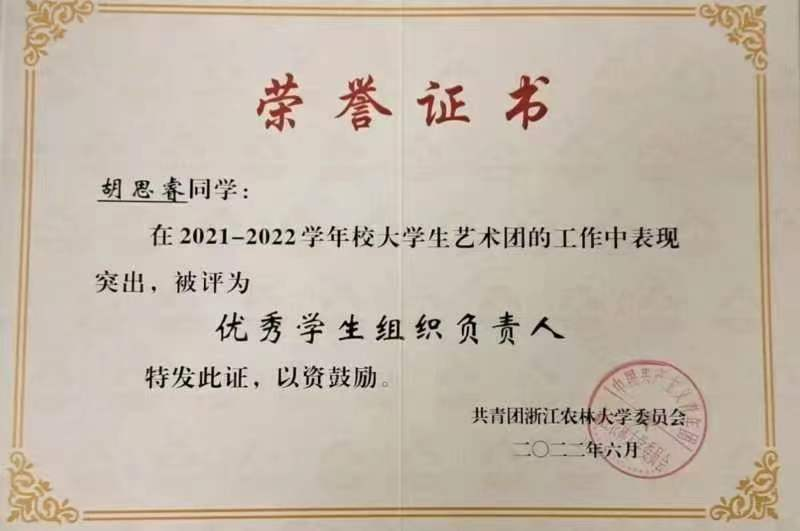 荣誉证书
胡思睿同学：
在2021-2022学年校大学生艺术团的工作中表现
突出，被评为
优秀学生组织负责人
特发此证，以资鼓励。
共青团浙江农林大学委员会
二〇二二年六月
中国共产主义青年团